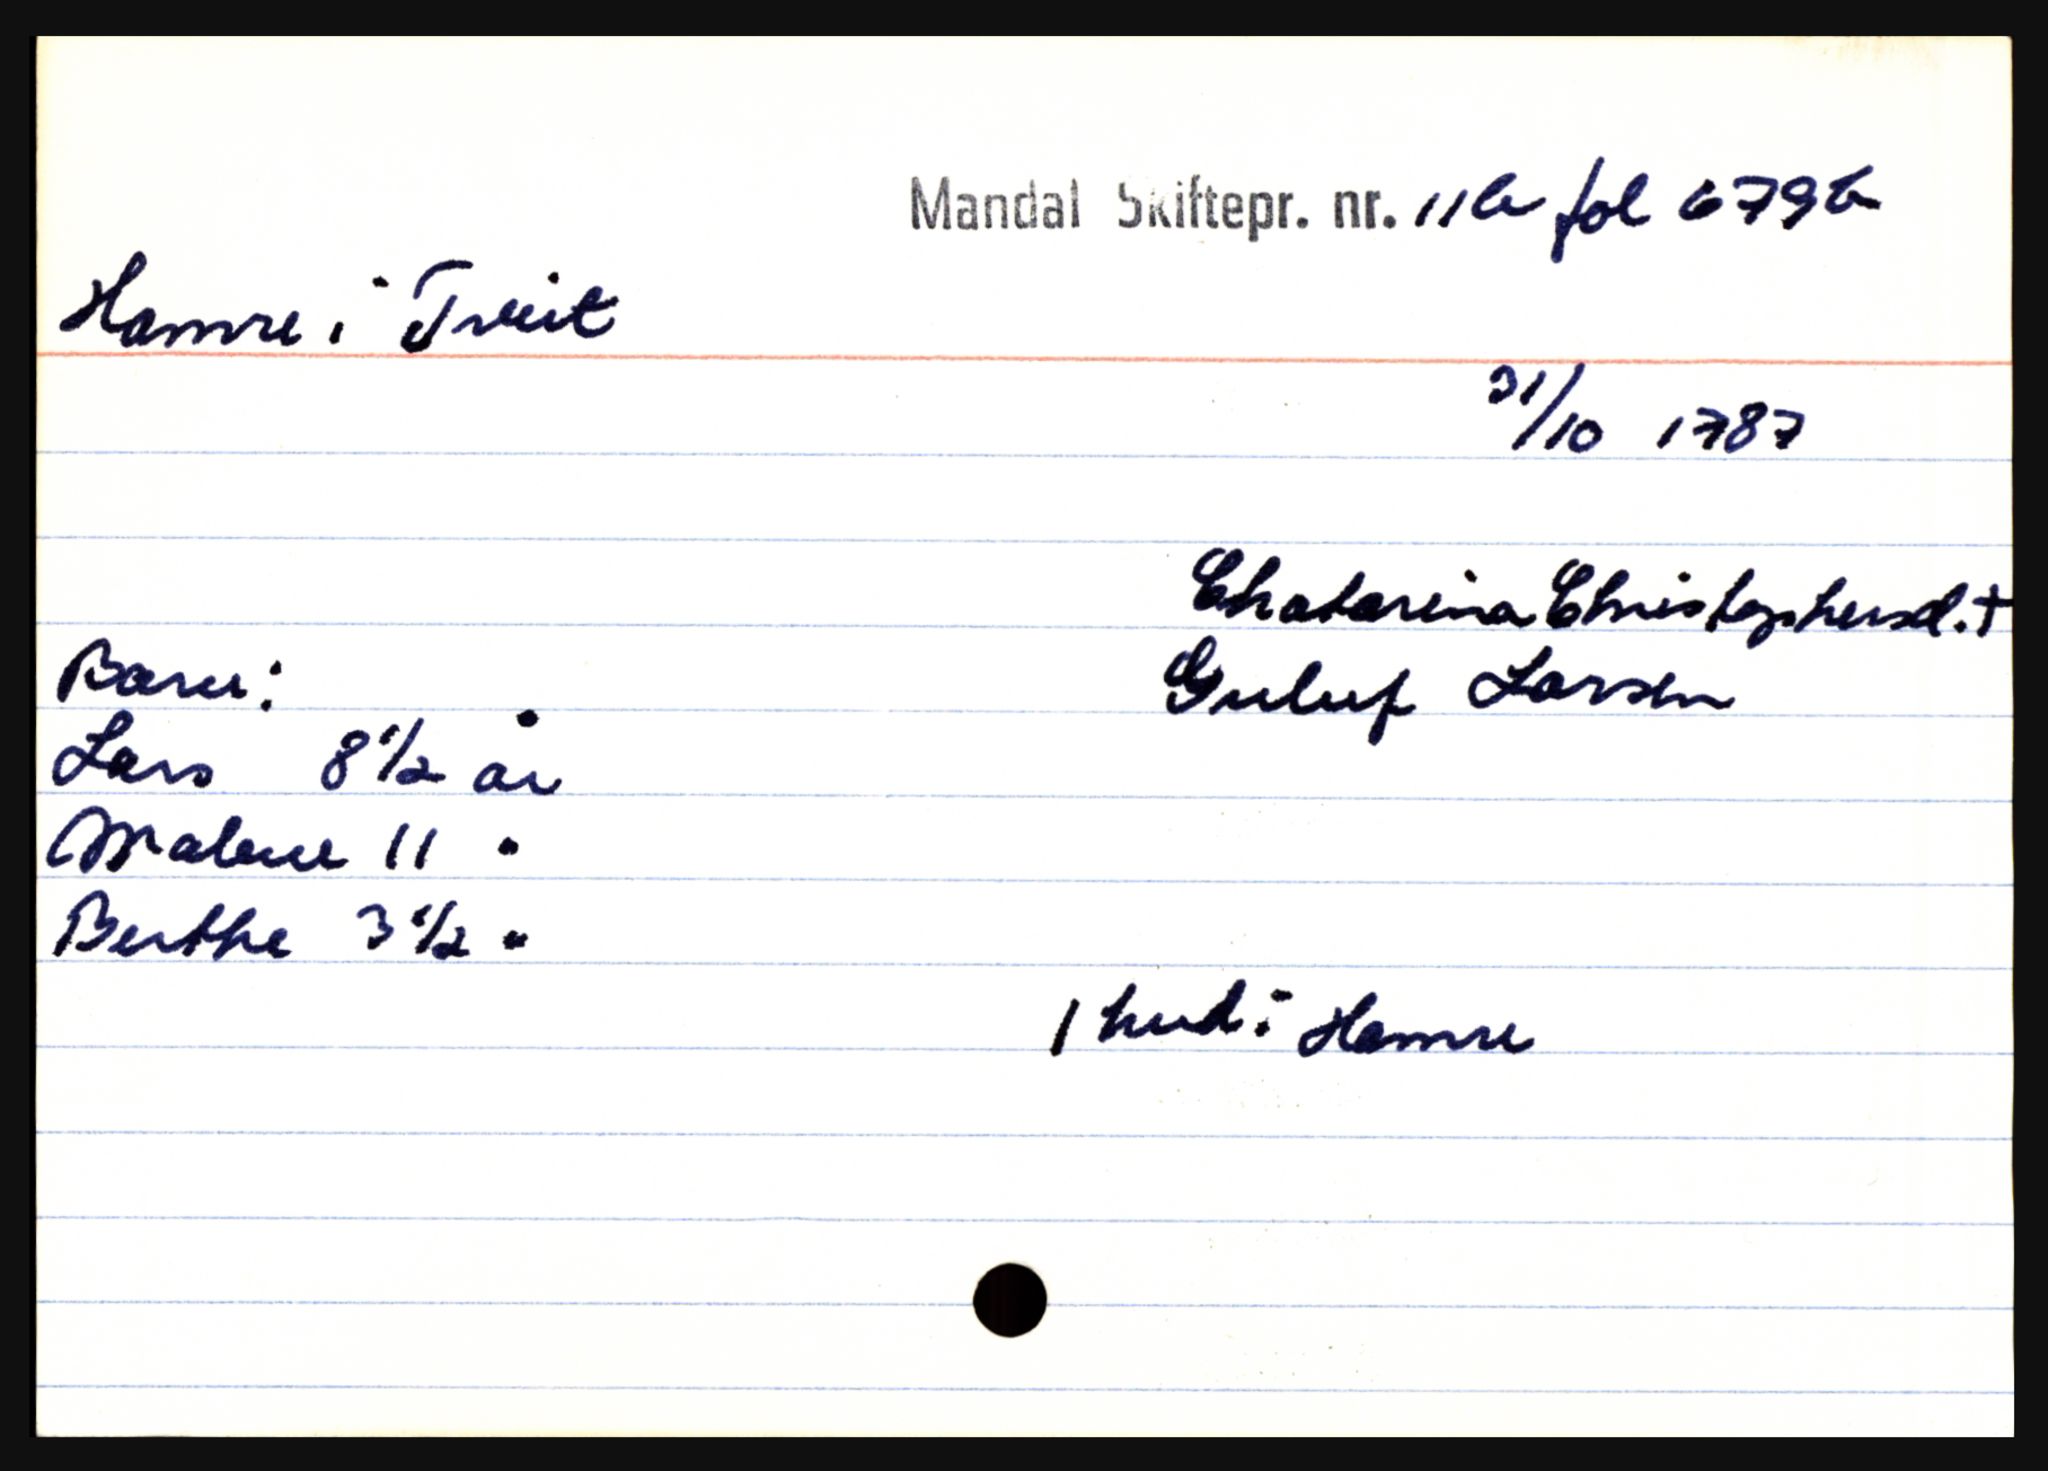 Mandal Skiftepr. nr. 11b fol 679b
Hamre i Tveit
31/10 1787
Chatarina Christophersd. †
Barn:
Guluf Larsen
Lars 8 1/2 år
Malene 11 "
Berthe 3 1/2 "
1 hud i Hamre